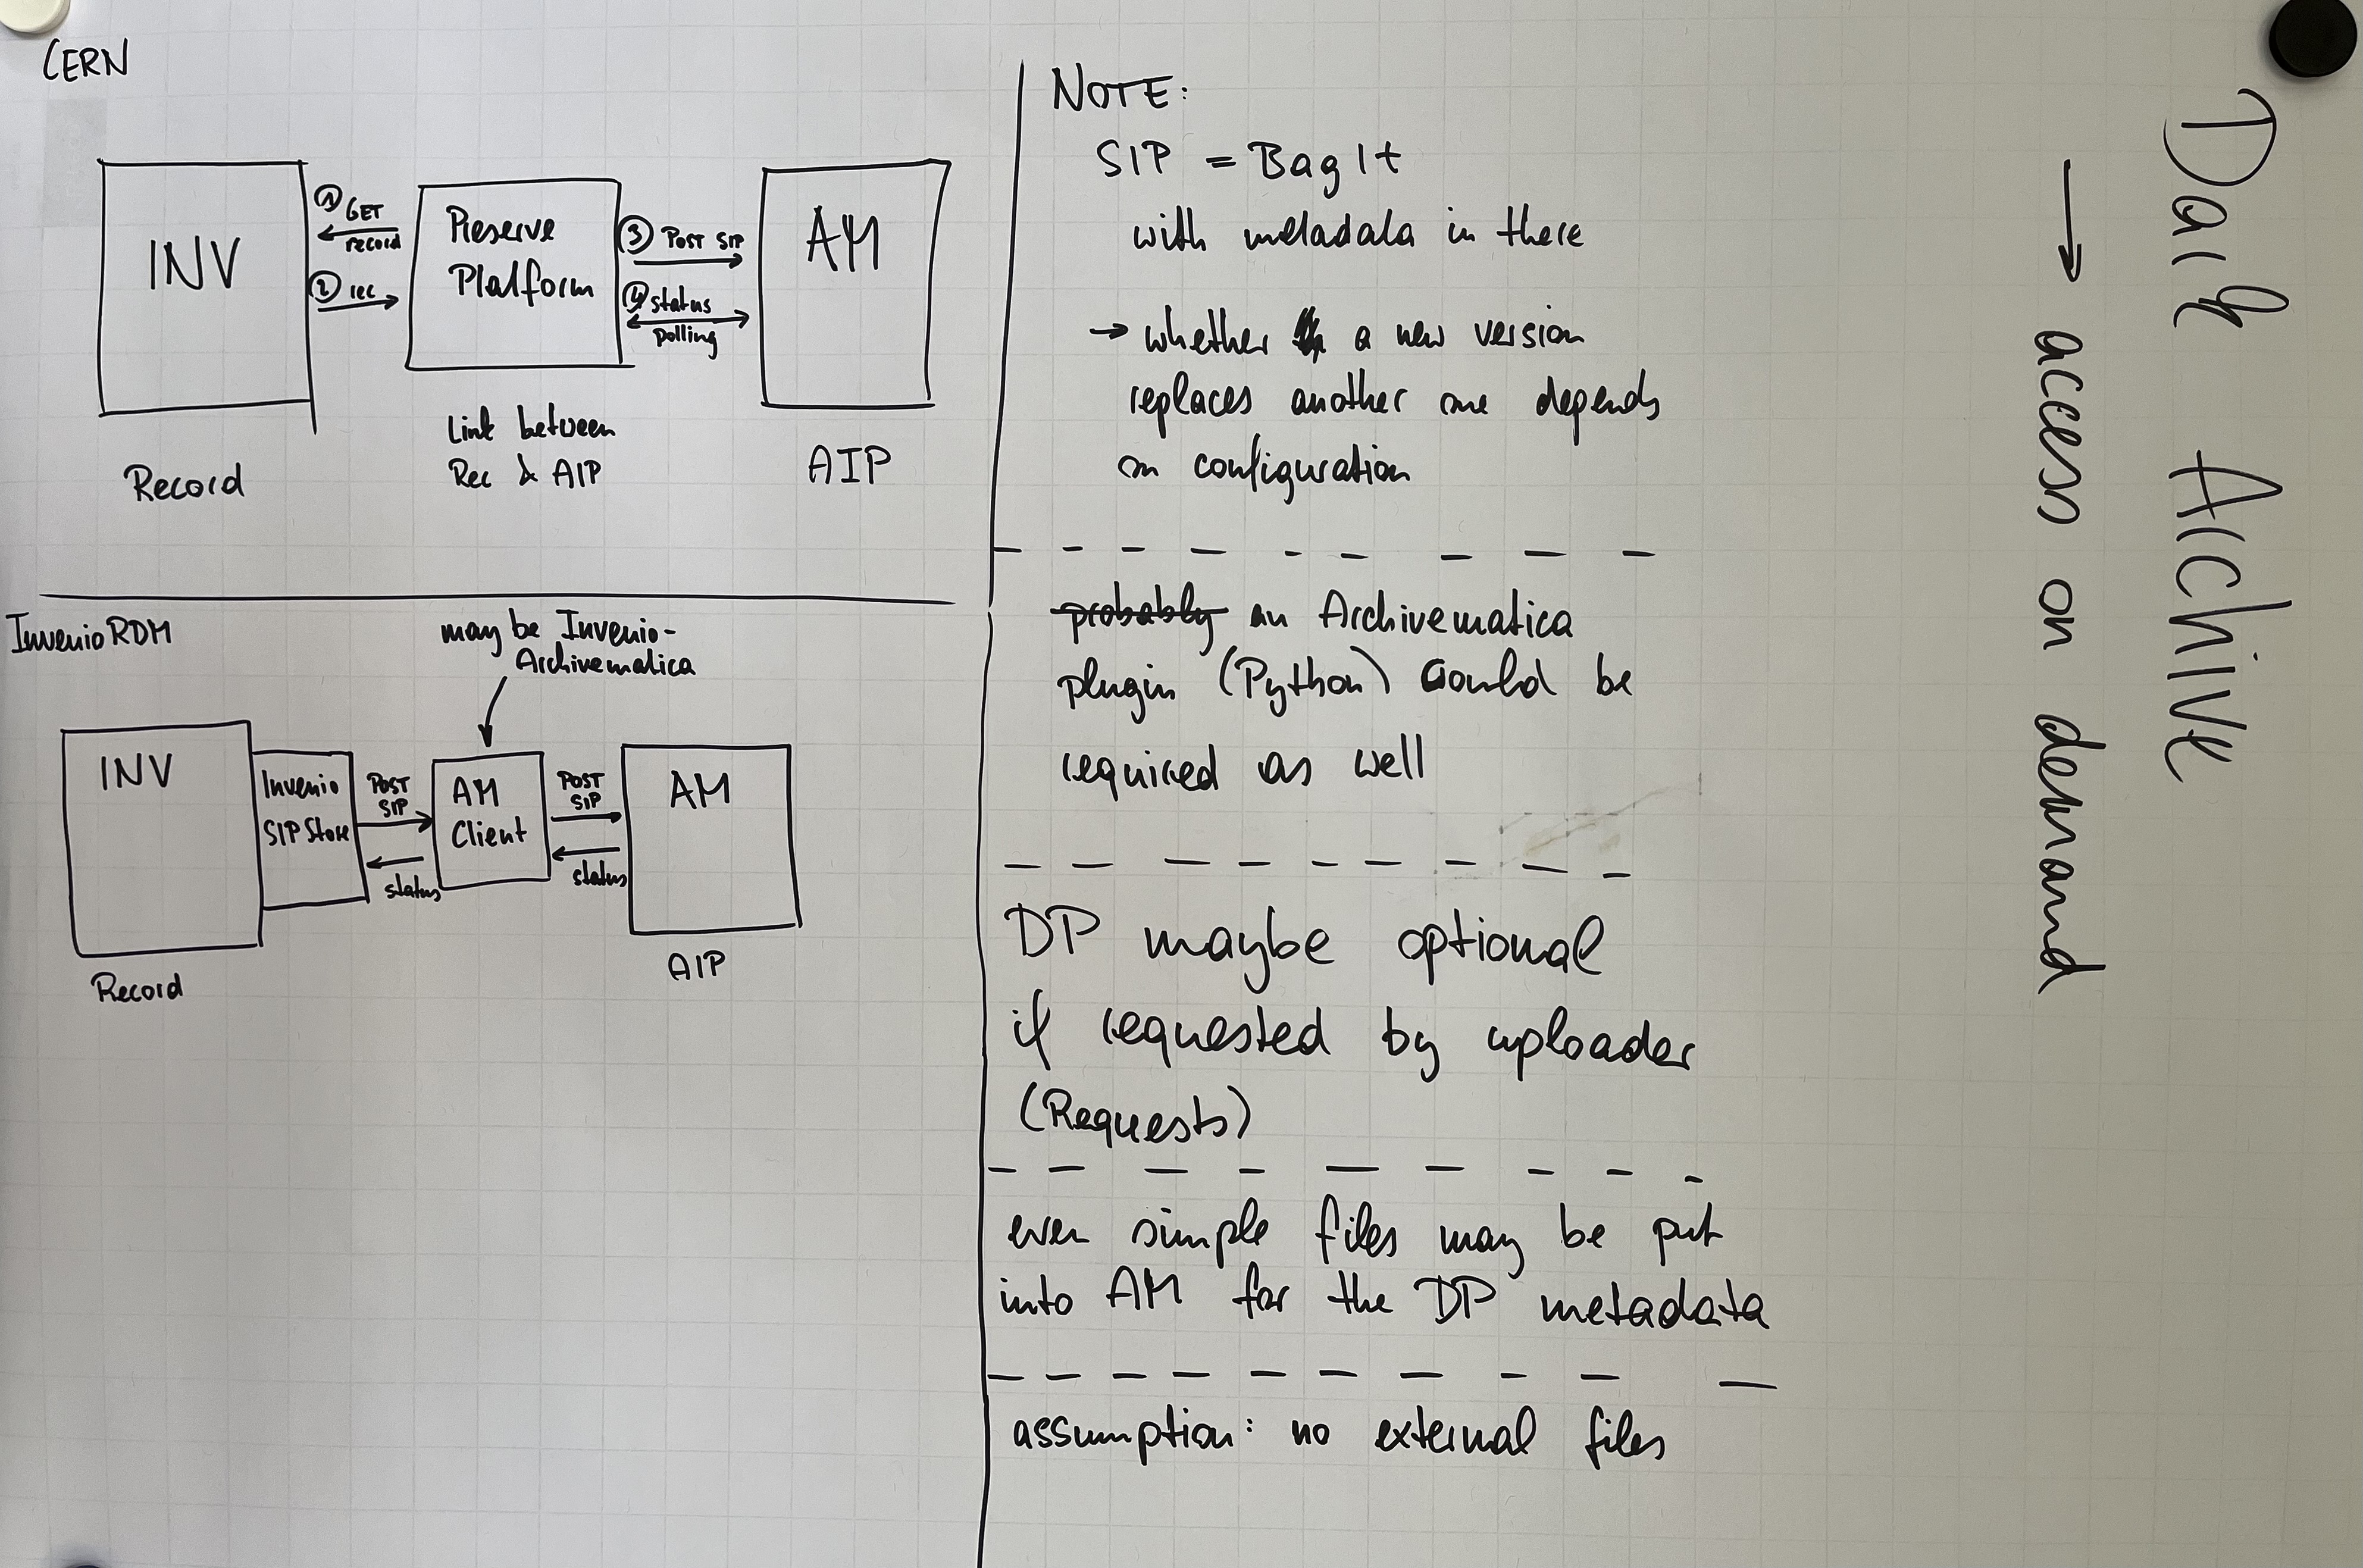 CERN
INV
① GET
record
② rec
Preserve
Platform
③ POST SIP
④ status
polling
AM
Record
Link between
Rec & AIP
AIP
InvenioRDM
may be Invenio-
Archivematica
INV
Invenio
SIPStore
POST
SIP
status
AM
Client
POST
SIP
status
AM
Record
AIP
NOTE:
SIP = BagIt
with metadata in there
→ whether a new version
replaces another one depends
on configuration
probably an Archivematica
plugin (Python) could be
required as well
DP maybe optional
if requested by uploader
(Requests)
even simple files may be put
into AM for the DP metadata
assumption: no external files
Dark Archive
→ access on demand